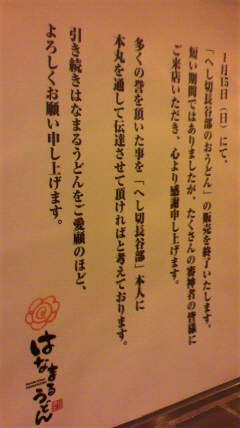 １月15日（日）にて、
「へし切長谷部のおうどん」の販売を終了いたします。
短い期間ではありましたが、たくさんの審神者の皆様に
ご来店いただき、心より感謝申し上げます。
多くの誉を頂いた事を「へし切長谷部」本人に
本丸を通して伝達させて頂ければと考えております。
引き続きはなまるうどんをご愛顧のほど、
よろしくお願い申し上げます。
はなまる
うどん